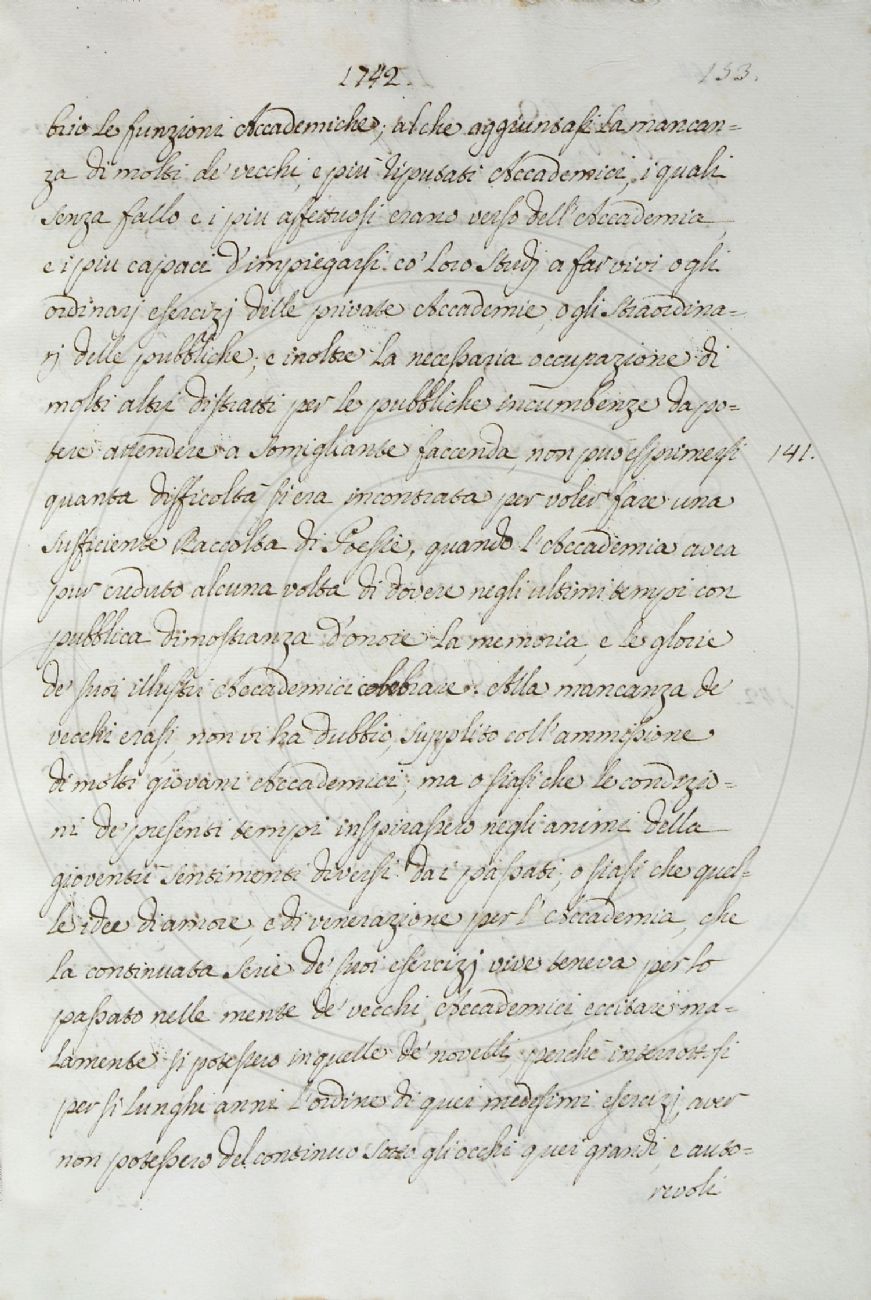 1742.
153.
brio le funzioni Accademiche; al che aggiuntasi la mancan=
za di molti de' vecchi, e più riputati Accademici, i quali
senza fallo e i piu affettuosi erano verso dell'Accademia,
e i piu capaci d'impiegarsi co' loro studj a far vivi o gli
ordinarj esercizj delle private Accademie, o gli straordina=
rj delle pubbliche; e inoltre la necessaria occupazione di
molti altri distratti per le pubbliche incumbenze da po=
tere attendere a somigliante faccenda, non può esprimersi
141.
quanta difficoltà si era incontrata per voler fare una
sufficiente Raccolta di Poesie, quando l'Accademia avea
pur creduto alcuna volta di dovere negli ultimi tempi con
pubblica dimostranza d'onore la memoria, e le glorie
de' suoi illustri Accademici celebrare. Alla mancanza de'
vecchi erasi, non vi ha dubbio, supplito coll'ammissione
di molti giovani Accademici; ma o siasi che le condizio=
ni de' presenti tempi inspirassero negli animi della
gioventù sentimenti diversi dai passati, o siasi che quel=
le idee di amore, e di venerazione per l'Accademia, che
la continuata serie de' suoi esercizj vive teneva per lo
passato nelle mente de' vecchi Accademici, eccitare ma=
lamente si potessero in quelle de' novelli, perchè interrottosi
per sì lunghi anni l'ordine di quei medesimi esercizj, aver
non potessero del continuo sotto gli occhi quei grandi, e auto=
revoli